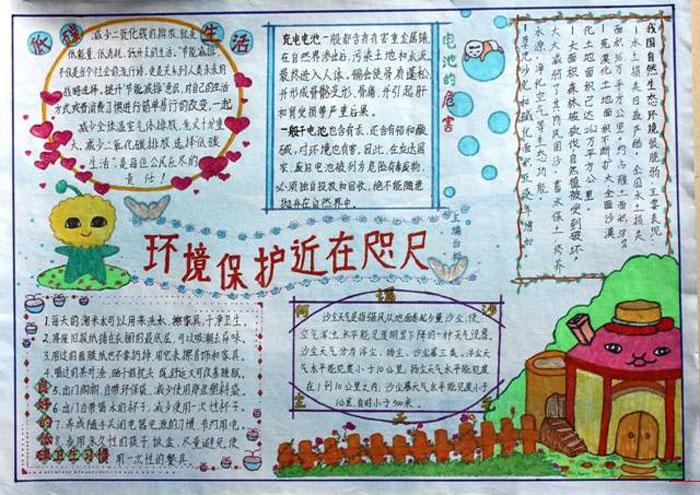 低碳生活
减少二氧化碳的排放，就是
低能量、低消耗、低开支的生活。“节能减排”
不仅是当今社会的流行语，更是关系到人类未来的
战略选择。提升“节能减排”意识，对自己的生活
方式或者消费习惯进行简单易行的改变，一起
减少全球温室气体排放，意义十分重
大。减少二氧化碳排放，选择“低碳
生活”，是每位公民应尽的
责任！
充电电池一般都含有有害重金属镉，
在自然界渗出后，污染土地和水域，
最终进入人体。镉会使骨质疏松，
并形成骨骼变形、骨痛，并引起肝
和肾受损带严重后果。
一般干电池包含有汞，还含有铅和酸
碱，对环境也有害。因此，在发达国
家，废旧电池被列为危险有毒废物，
必须独自投放和回收，绝不能随意
抛弃在自然界中。
电池的危害
我国自然生态环境很脆弱，主要表现：
水土流失日益严重，全国水土流失
大面积森林被砍伐，自然植被受到破坏，
大大减弱了其防风固沙、蓄水保土、涵养
水源、净化空气等生态功能。
草地沙化和碱化面积逐年增加
环境保护近在咫尺
主编
良好的低碳卫生习惯
1.每天的淘米水可以用来洗水、擦家具，干净卫生。
2.将废旧报纸铺在衣橱的最底层，可以吸潮去异味。
3.用过的面膜纸也不要扔掉，用它来擦首饰和家具。
4.喝过的茶叶渣，晒干做枕头，既舒适又可改善睡眠。
5.出门购物，自带环保袋，减少使用塑料袋。
6.出门自带喝水的杯子，减少使用一次性杯子。
7.养成随手关闭电器电源的习惯，节约用电。
8.多用永久性的筷子、饭盒，尽量避免使
用一次性的餐具。
何谓沙尘天
沙尘天气是指强风从地面卷起大量沙尘，使
空气浑浊，水平能见度明显下降的一种天气现象。
沙尘天气分为浮尘、扬尘、沙尘暴三类。浮尘天
气水平能见度小于10公里，扬尘天气水平能见度
在1到10公里之内，沙尘暴天气水平能见度小于
1公里，有时小于500米。